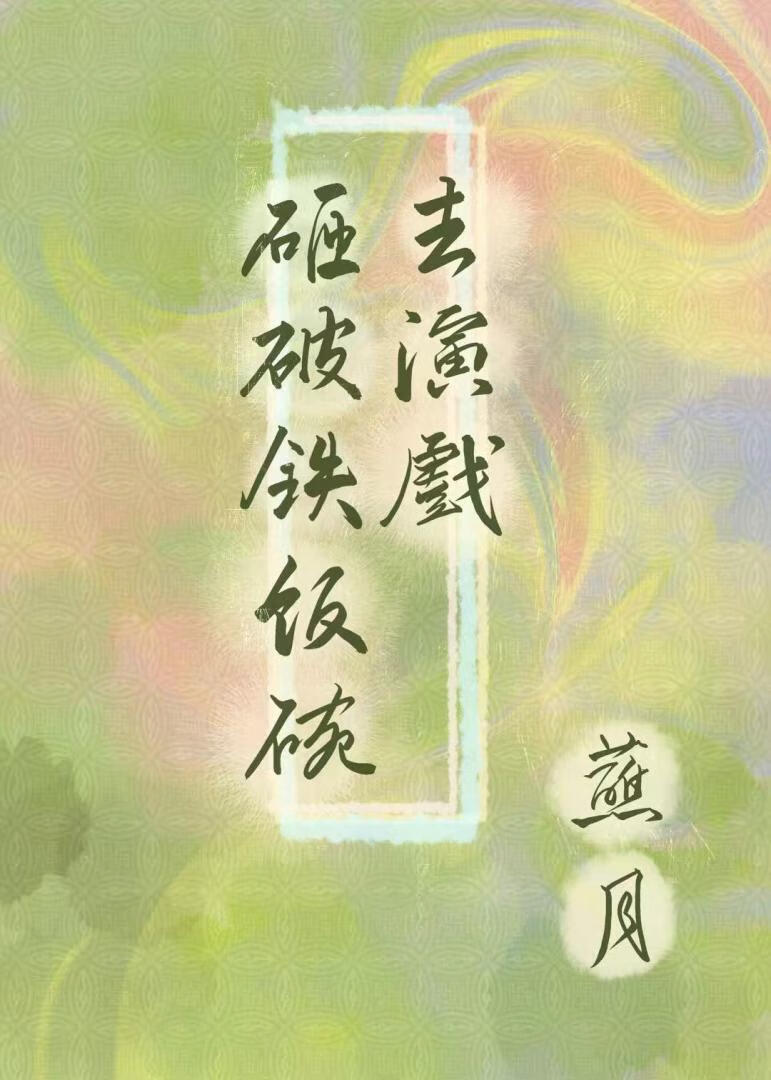 砸破鉄饭碗
去演戲
蘸月